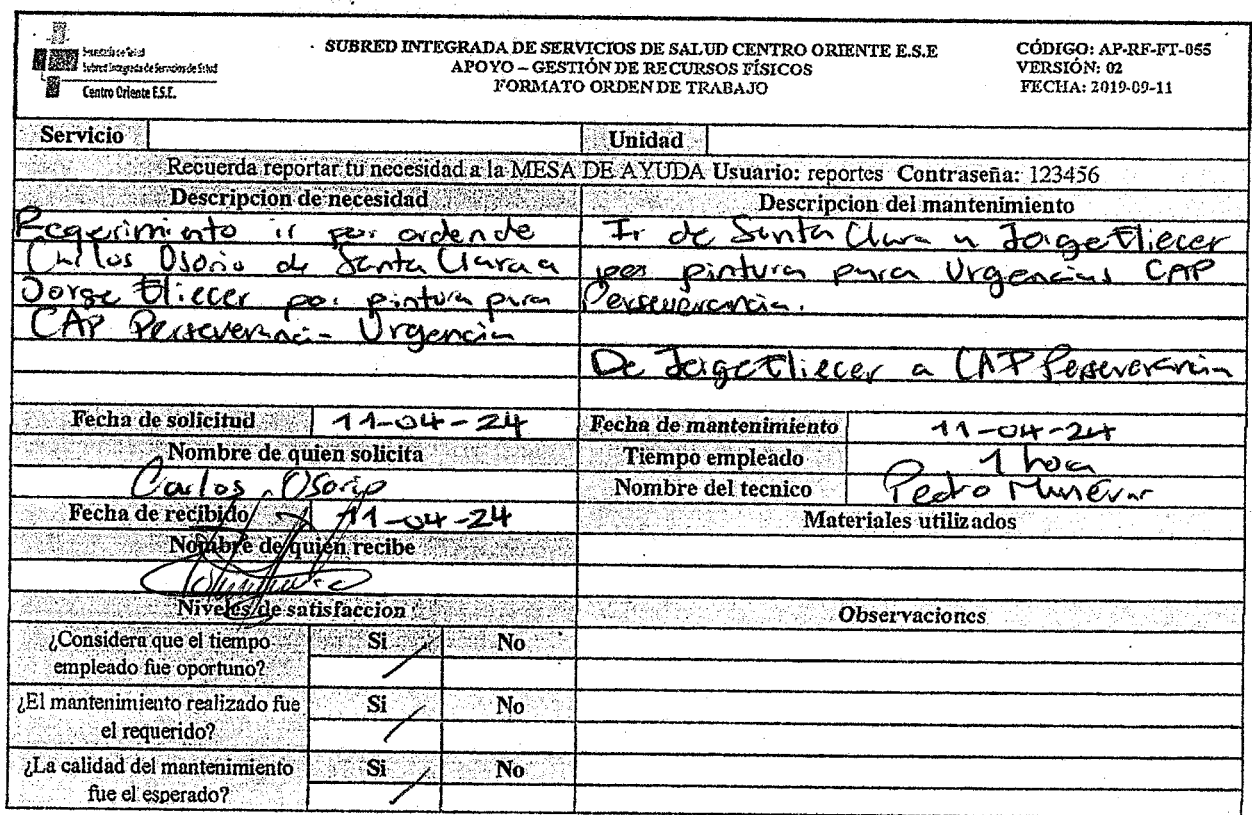 Secretaría de Salud
Subred Integrada de Servicios de Salud
Centro Oriente E.S.E.
SUBRED INTEGRADA DE SERVICIOS DE SALUD CENTRO ORIENTE E.S.E
APOYO – GESTIÓN DE RECURSOS FÍSICOS
FORMATO ORDEN DE TRABAJO
CÓDIGO: AP-RF-FT-055
VERSIÓN: 02
FECHA: 2019-09-11
Servicio
Unidad
Recuerda reportar tu necesidad a la MESA DE AYUDA Usuario: reportes Contraseña: 123456
Descripcion de necesidad
Requerimiento ir por orden de
Carlos Osorio de Santa Clara a
Jorge Eliecer por pintura para
CAP Perseverancia Urgencia
Descripcion del mantenimiento
Ir de Santa Clara a Jorge Eliecer
por pintura para Urgencias CAP
Perseverancia.
De Jorge Eliecer a CAP Perseverancia
Fecha de solicitud 11-04-24
Nombre de quien solicita
Carlos Osorio
Fecha de recibido 11-04-24
Nombre de quien recibe
Fecha de mantenimiento 11-04-24
Tiempo empleado 1 hora
Nombre del tecnico Pedro Munévar
Materiales utilizados
Niveles de satisfaccion
Observaciones
¿Considera que el tiempo
empleado fue oportuno?
Si No
¿El mantenimiento realizado fue
el requerido?
Si No
¿La calidad del mantenimiento
fue el esperado?
Si No